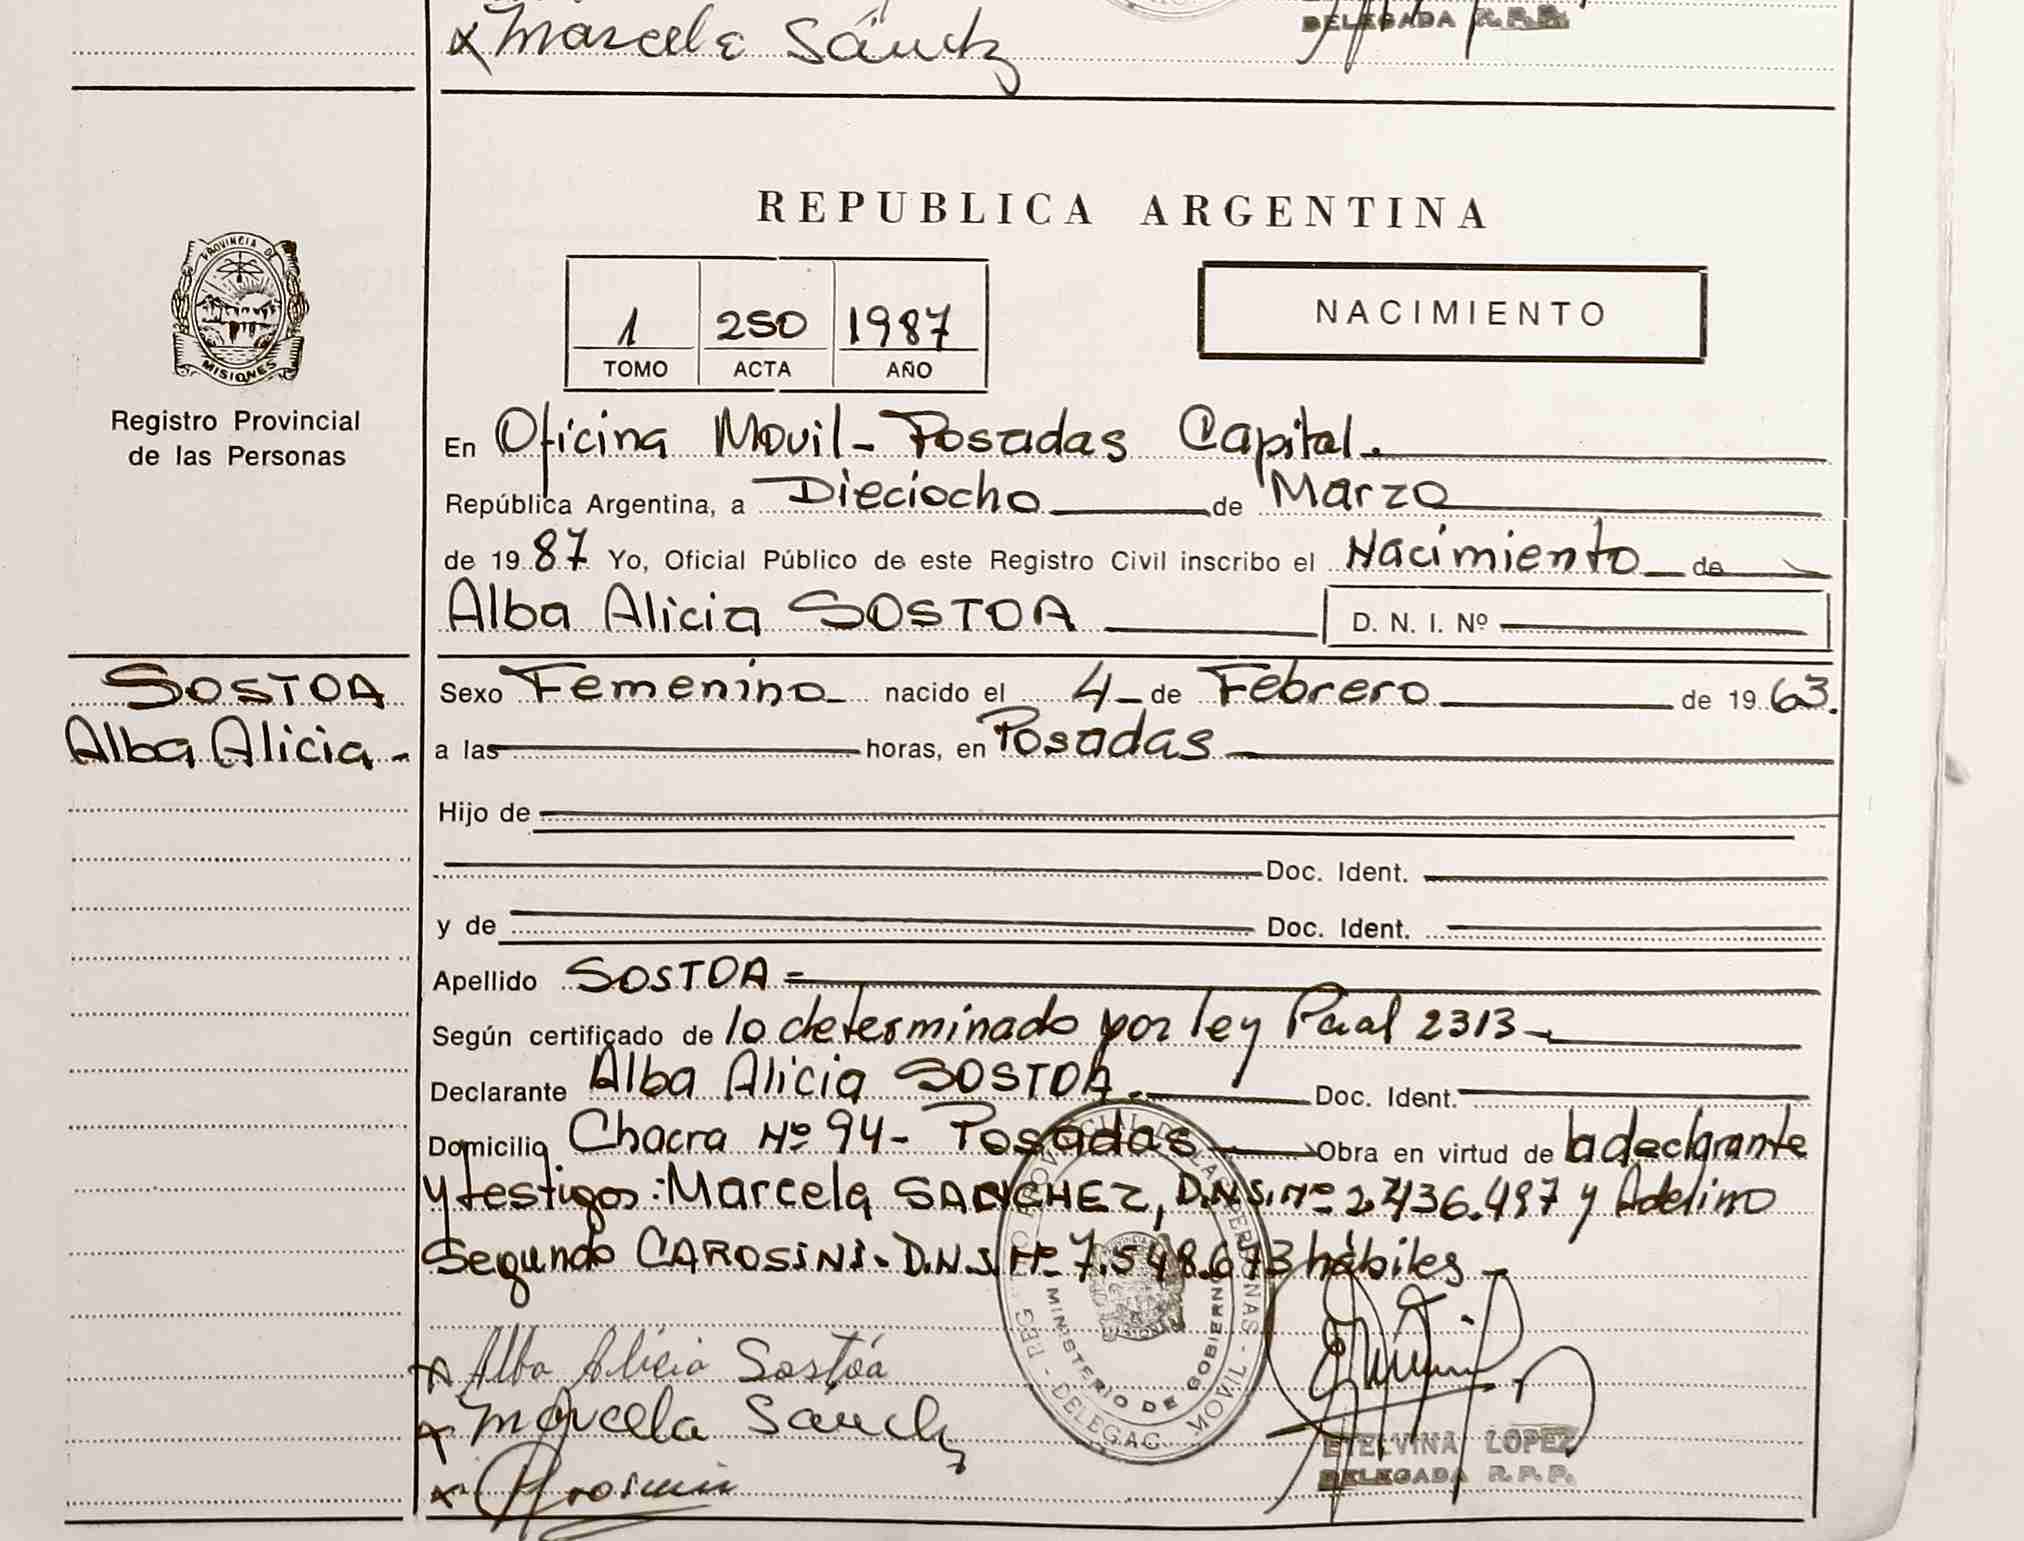 x Marcela Sánchz
DELEGADA R.P.P.
REPUBLICA ARGENTINA
PROVINCIA DE
MISIONES
Registro Provincial
de las Personas
1 250 1987
TOMO ACTA AÑO
NACIMIENTO
En Oficina Movil - Posadas Capital.
República Argentina, a Dieciocho de Marzo
de 1987 Yo, Oficial Público de este Registro Civil inscribo el Nacimiento de
Alba Alicia SOSTOA D. N. I. Nº
SOSTOA
Alba Alicia -
Sexo Femenino nacido el 4 de Febrero de 1963.
a las horas, en Posadas
Hijo de
Doc. Ident.
y de Doc. Ident.
Apellido SOSTOA =
Según certificado de lo determinado por ley Pcial 2313
Declarante Alba Alicia SOSTOA. Doc. Ident.
Domicilio Chacra Nº 94 - Posadas Obra en virtud de la declarante
y testigos: Marcela SANCHEZ, D.N.I. Nº 2.436.497 y Adelino
Segundo CAROSINI - D.N.I. Nº 7.548.673 hábiles
x Alba Alicia Sostóa
x Marcela Sánchz
ETELVINA LOPEZ
DELEGADA R.P.P.
MINISTERIO DE GOBIERNO